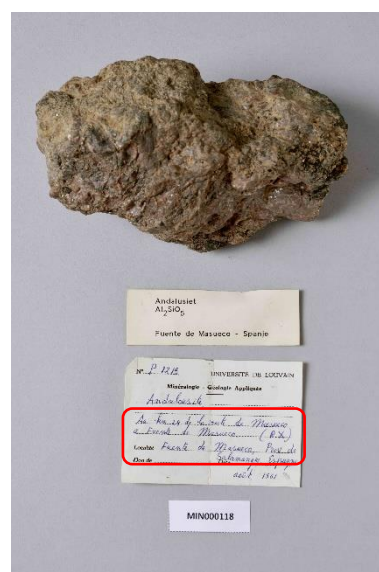 Andalusiet
Al2SiO5
Fuente de Masueco - Spanje
N° P 1213 UNIVERSITÉ DE LOUVAIN
Minéralogie - Géologie Appliquée
Andalousite
Au Km 29 de la route de Masueco
à Fuente de Masueco
Localité Fuente de Masueco, Prov de
Salamanque, Espagne
Don de août 1961
MIN000118